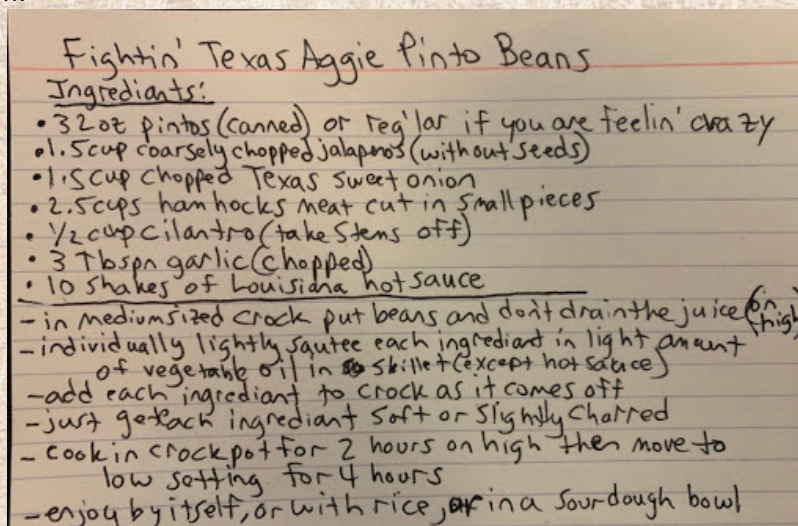 Fightin' Texas Aggie Pinto Beans
Ingrediants:
• 32oz pintos (canned) or reg'lar if you are feelin' crazy
• 1.5cup coarsely chopped jalapenos (without seeds)
• 1.5cup chopped Texas sweet onion
• 2.5cups ham hocks meat cut in small pieces
• 1/2 cup cilantro (take stems off)
• 3 Tbspn garlic (chopped)
• 10 shakes of Louisiana hot sauce
- in medium sized crock put beans and don't drain the juice (on high)
- individually lightly sautee each ingrediant in light amount
of vegetable oil in skillet (except hot sauce)
- add each ingrediant to crock as it comes off
- just get each ingrediant soft or slightly charred
- cook in crockpot for 2 hours on high then move to
low setting for 4 hours
- enjoy by itself, or with rice, or in a sourdough bowl